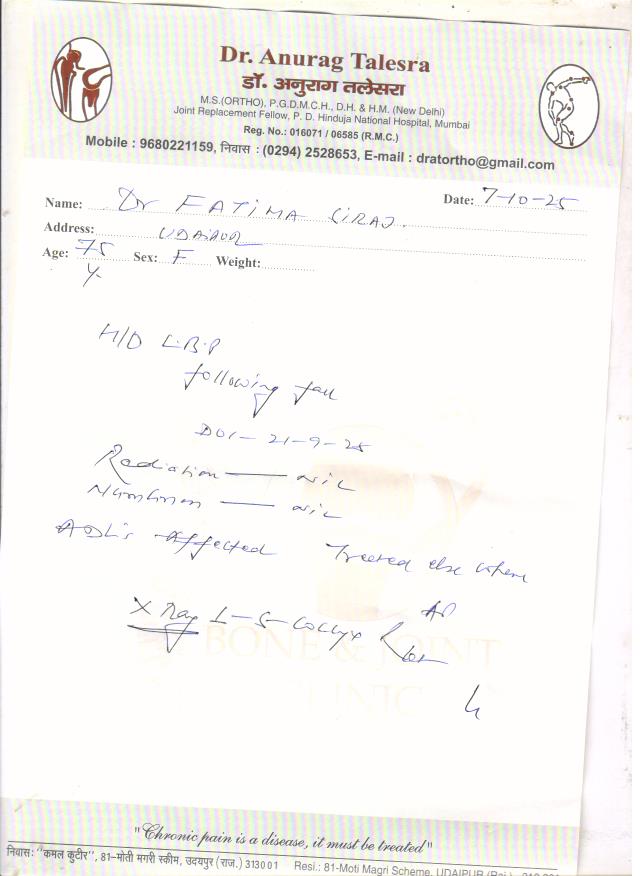 Dr. Anurag Talesra
डॉ. अनुराग तलेसरा
M.S.(ORTHO), P.G.D.M.C.H., D.H. & H.M. (New Delhi)
Joint Replacement Fellow, P. D. Hinduja National Hospital, Mumbai
Reg. No.: 016071 / 06585 (R.M.C.)
Mobile : 9680221159, निवास : (0294) 2528653, E-mail : dratortho@gmail.com
Name: Dr FATIMA SIRAJ. Date: 7-10-25
Address: UDAIPUR
Age: 75 Y Sex: F Weight:
H/O L.B.P
following fall
DOI- 21-9-25
Radiation — NIL
Numbness — NIL
ADL's Affected Treated else where
X Ray L-S-Coccyx AP
Lat
BONE & JOINT
CLINIC
"Chronic pain is a disease, it must be treated"
निवास: "कमल कुटीर", 81-मोती मगरी स्कीम, उदयपुर (राज.) 313001 Resi.: 81-Moti Magri Scheme, UDAIPUR (Raj.)